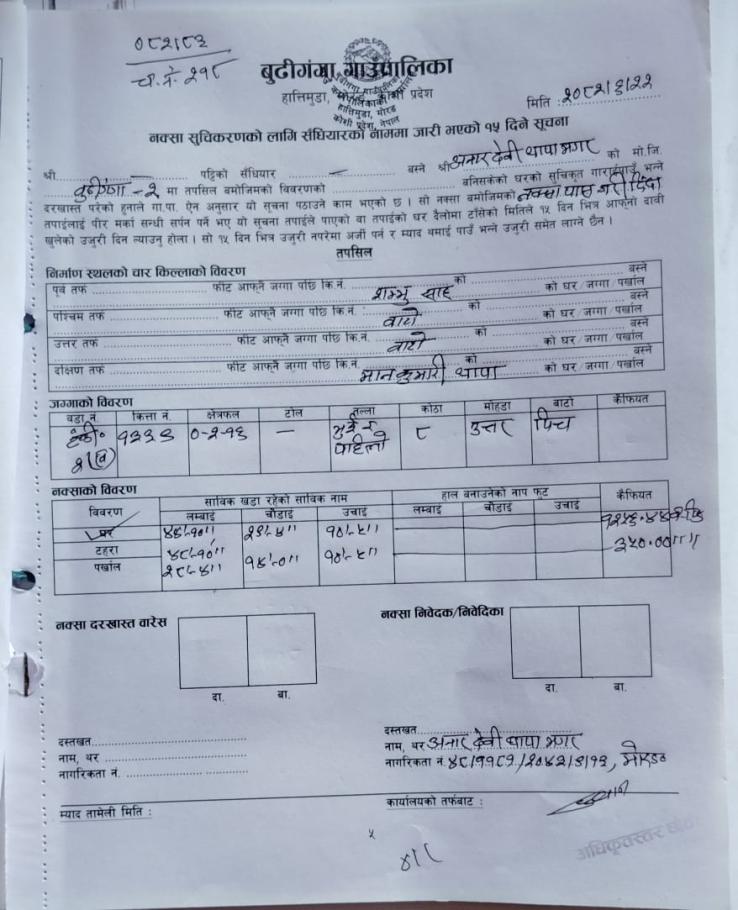 ०८२।८३
च.नं. २१८
बुढीगंगा गाउँपालिका
हात्तिमुडा, मोरङ, कोशी प्रदेश
मिति :२०८२।६।२२
नक्सा सुचिकरणको लागि संधियारको नाममा जारी भएको १५ दिने सूचना
श्री पट्टिको संधियार बस्ने श्री अनार देवी थापा मगर को मो.जि.
बुढीगंगा - २ मा तपसिल बमोजिमको विवरणको बनिसकेको घरको सुचिकृत गराईपाउँ भन्ने
दरखास्त परेको हुनाले गा.पा. ऐन अनुसार यो सूचना पठाउने काम भएको छ । सो नक्सा बमोजिमको नक्सा पास गरी दिंदा
तपाईलाई पीर मर्का सन्धी सर्पन पर्ने भए यो सूचना तपाईले पाएको वा तपाईको घर दैलोमा टाँसेको मितिले १५ दिन भित्र आफ्नो दावी
खुलेको उजुरी दिन ल्याउनु होला । सो १५ दिन भित्र उजुरी नपरेमा अर्जी पर्न र म्याद थमाई पाउँ भन्ने उजुरी समेत लाग्ने छैन ।
तपसिल
निर्माण स्थलको चार किल्लाको विवरण
पूर्व तर्फ फीट आफ्नै जग्गा पछि कि.नं. शम्भु साह को बस्ने को घर/जग्गा/पर्खाल
पश्चिम तर्फ फीट आफ्नै जग्गा पछि कि.नं. : बाटो को बस्ने को घर/जग्गा/पर्खाल
उत्तर तर्फ फीट आफ्नै जग्गा पछि कि.नं. बाटो को बस्ने को घर/जग्गा/पर्खाल
दक्षिण तर्फ फीट आफ्नै जग्गा पछि कि.नं. मानकुमारी थापा को बस्ने को घर/जग्गा/पर्खाल
जग्गाको विवरण
वडा नं. कित्ता नं. क्षेत्रफल टोल तल्ला कोठा मोहडा बाटो कैफियत
१३३३ ०-२-१६ — पहिलो ८ उत्तर पिच
नक्साको विवरण
विवरण साविक खडा रहेको साविक नाम हाल बनाउनेको नाप फुट कैफियत
लम्बाई चौडाई उचाई लम्बाई चौडाई उचाई
घर
टहरा
पर्खाल
नक्सा दरखास्त वारेस नक्सा निवेदक/निवेदिका
दा. बा. दा. बा.
दस्तखत दस्तखत
नाम, थर नाम, थर अनार देवी थापा मगर
नागरिकता नं. नागरिकता नं. ४८/११८१/२०४२/३/१३, मोरङ
म्याद तामेली मिति : कार्यालयको तर्फबाट :
अधिकृतस्तर